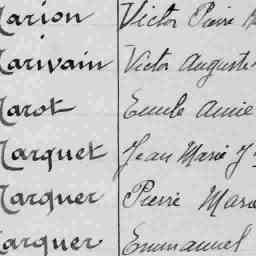 Marion Victor Pierre
Marivain Victor Auguste
Marot Emile Aimé
Marquet Jean Marie J
Marquer Pierre Marie
Marquer Emmanuel